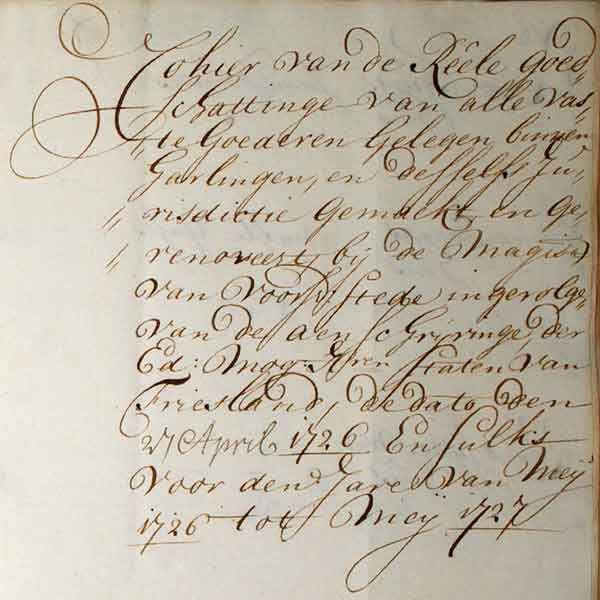 Cohier van de Reêle goed
Schattinge van alle vas„
„te Goederen Gelegen binnen
Harlingen, en desselfs Ju„
„risdictie gemaekt en ge„
„renoveert, bij de Magistr
van voors: stede in gevolge
van de aenschrijvinge, der
Ed: Mog: Hren Staten van
Friesland, de dato den
27 April 1726 En sulks
voor den Jare van Meij
1726 tot Meij 1727